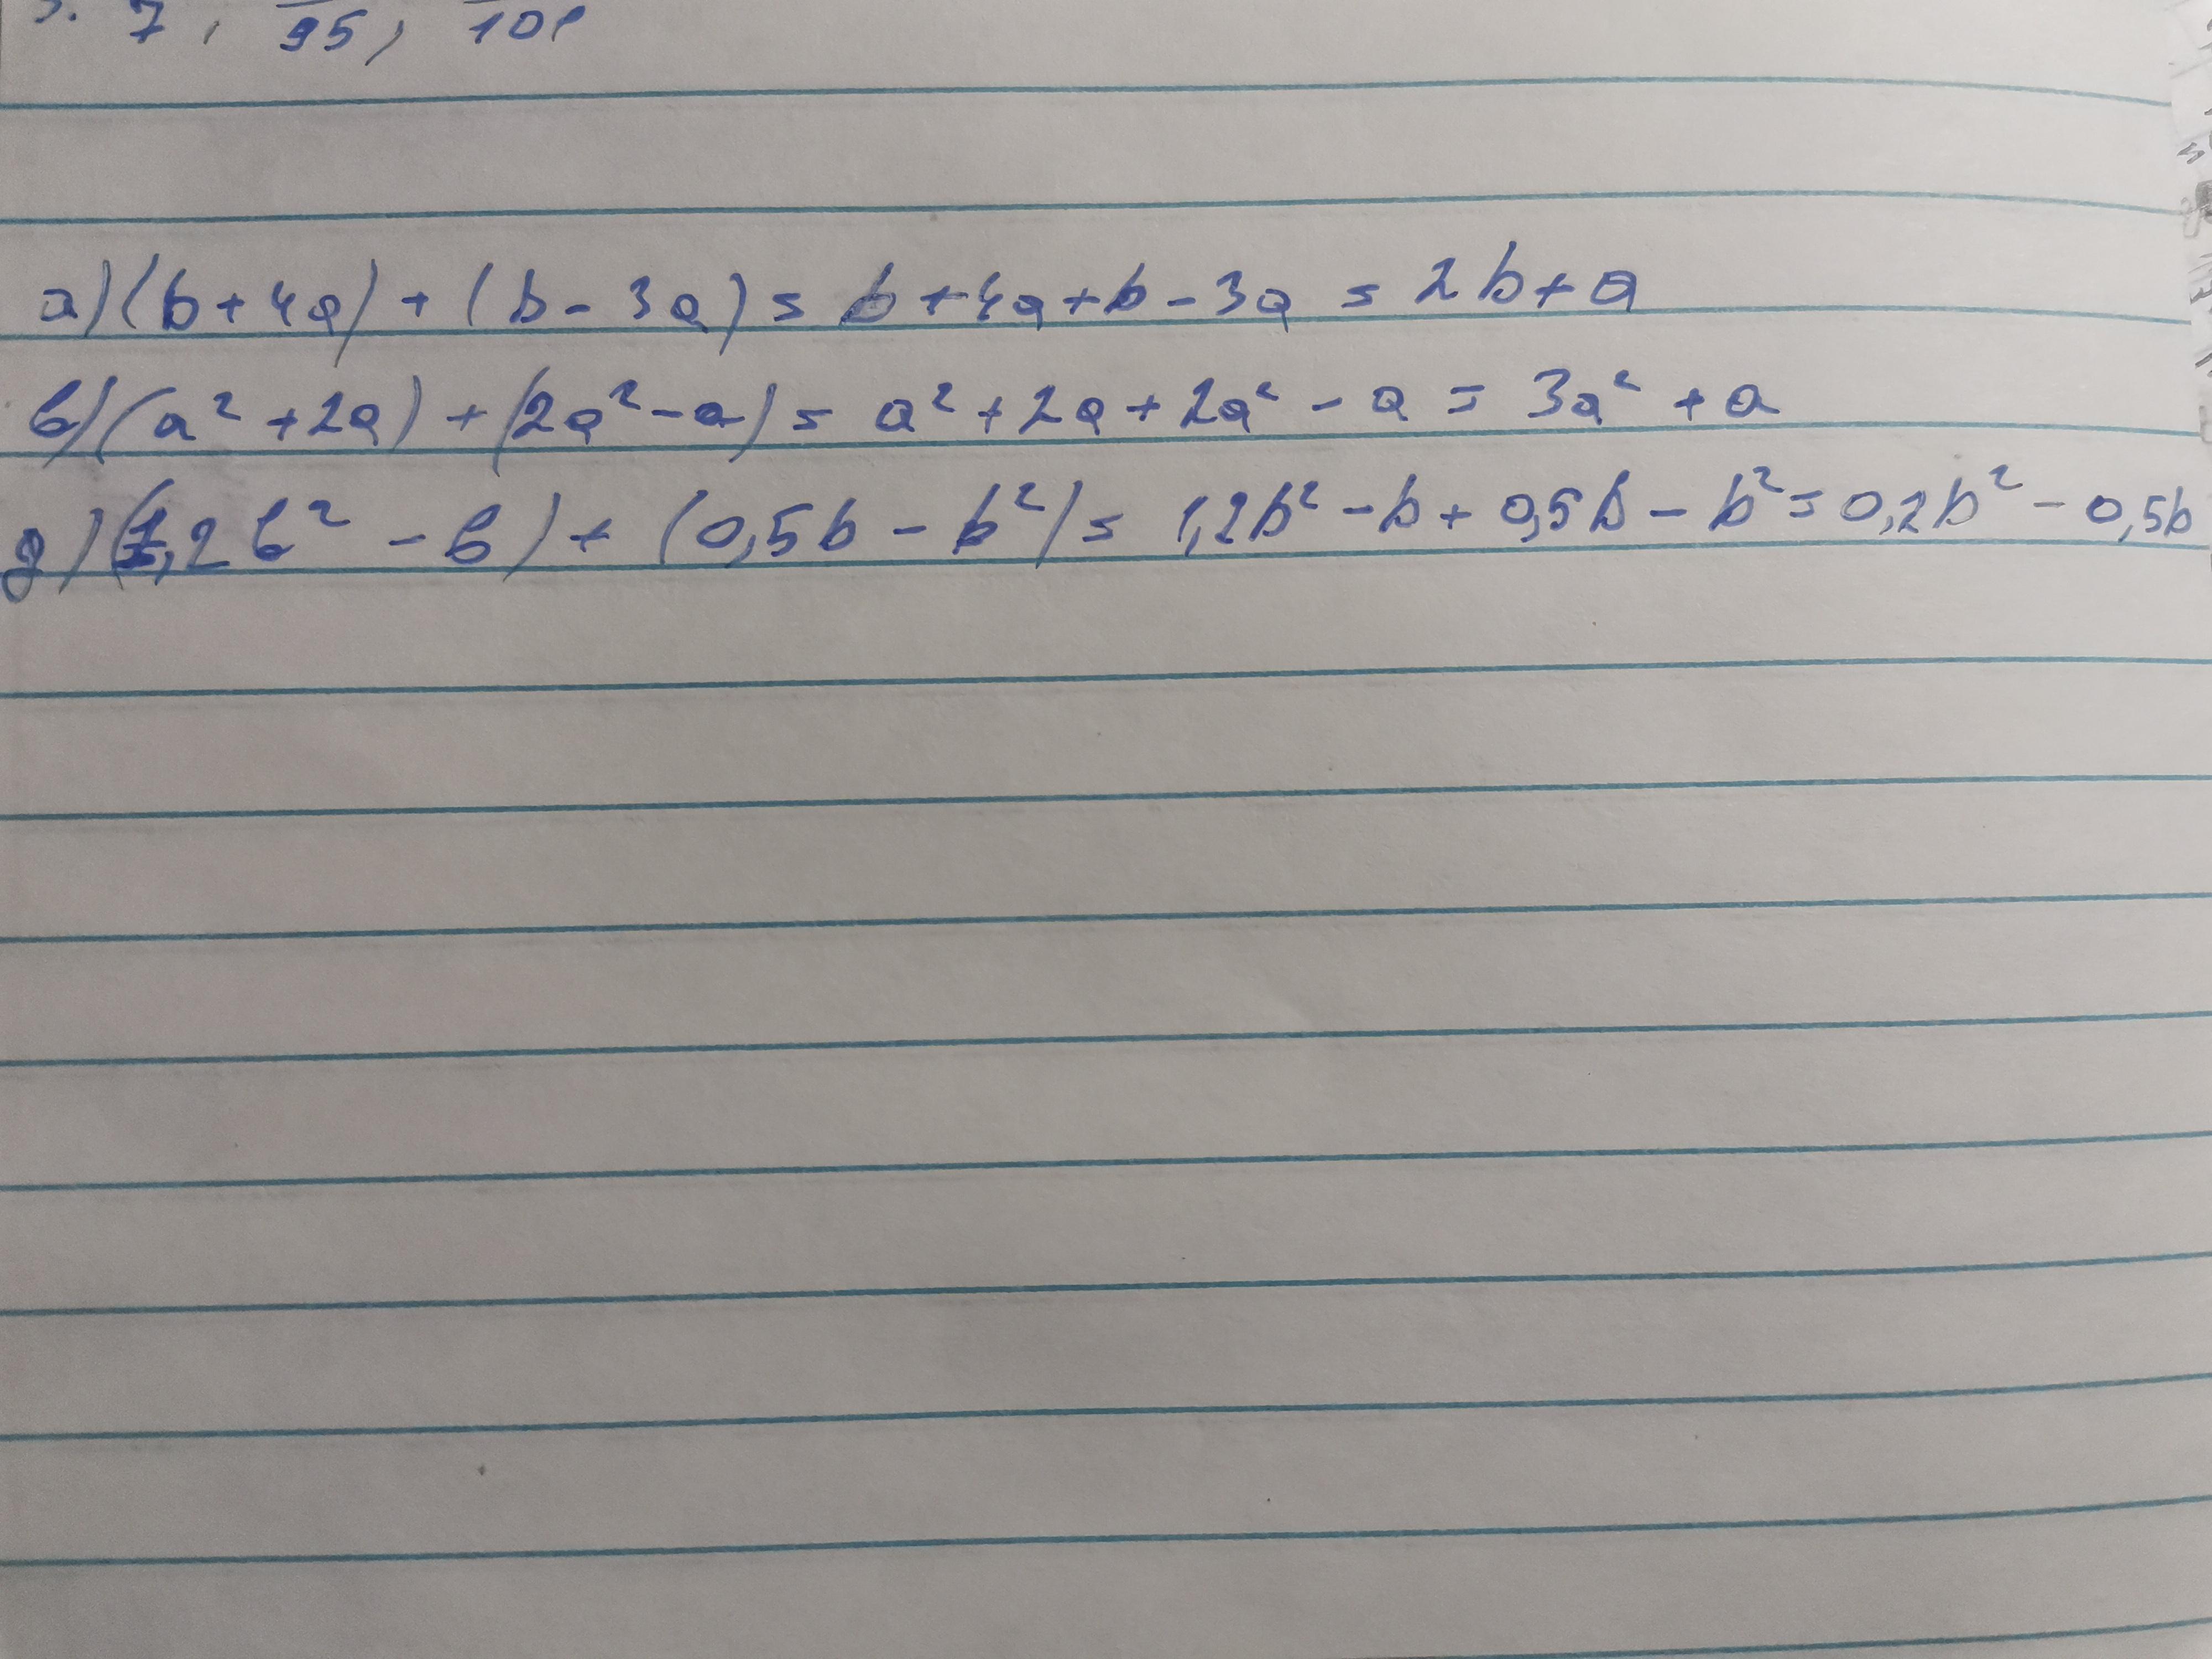 7, 95, 101
а) (b + 4a) + (b - 3a) = b + 4a + b - 3a = 2b + a
в) (a² + 2a) + (2a² - a) = a² + 2a + 2a² - a = 3a² + a
д) (1,2b² - b) + (0,5b - b²) = 1,2b² - b + 0,5b - b² = 0,2b² - 0,5b